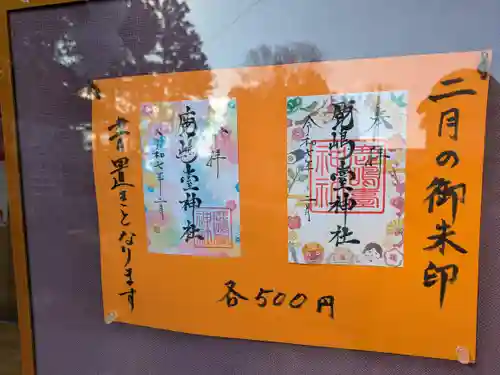 二月の御朱印
奉拝
鹿嶋臺神社
令和七年二月
鹿嶋臺神社
奉拝
鹿嶋臺神社
令和七年二月
書置きとなります
各500円